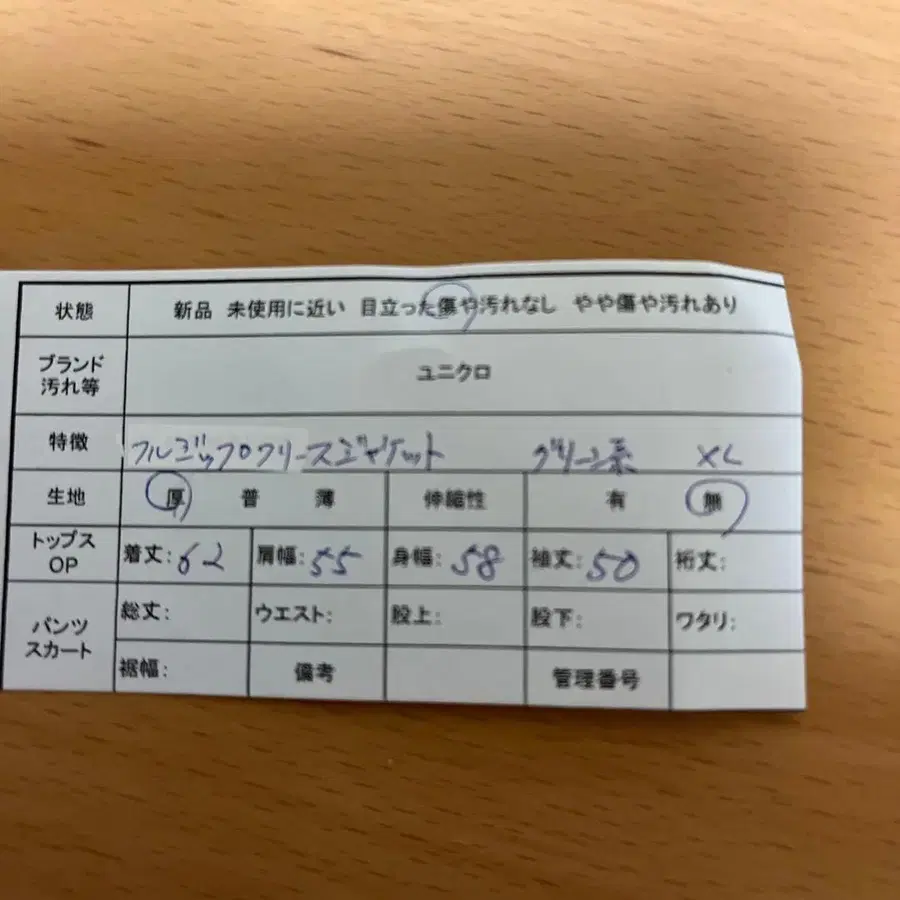 状態 新品 未使用に近い 目立った傷や汚れなし やや傷や汚れあり
ブランド
汚れ等
ユニクロ
特徴 フルジップフリースジャケット グリーン系 XL
生地 厚 普 薄 伸縮性 有 無
トップス
OP
着丈:62 肩幅:55 身幅:58 袖丈:50 裄丈:
パンツ
スカート
総丈: ウエスト: 股上: 股下: ワタリ:
裾幅: 備考 管理番号